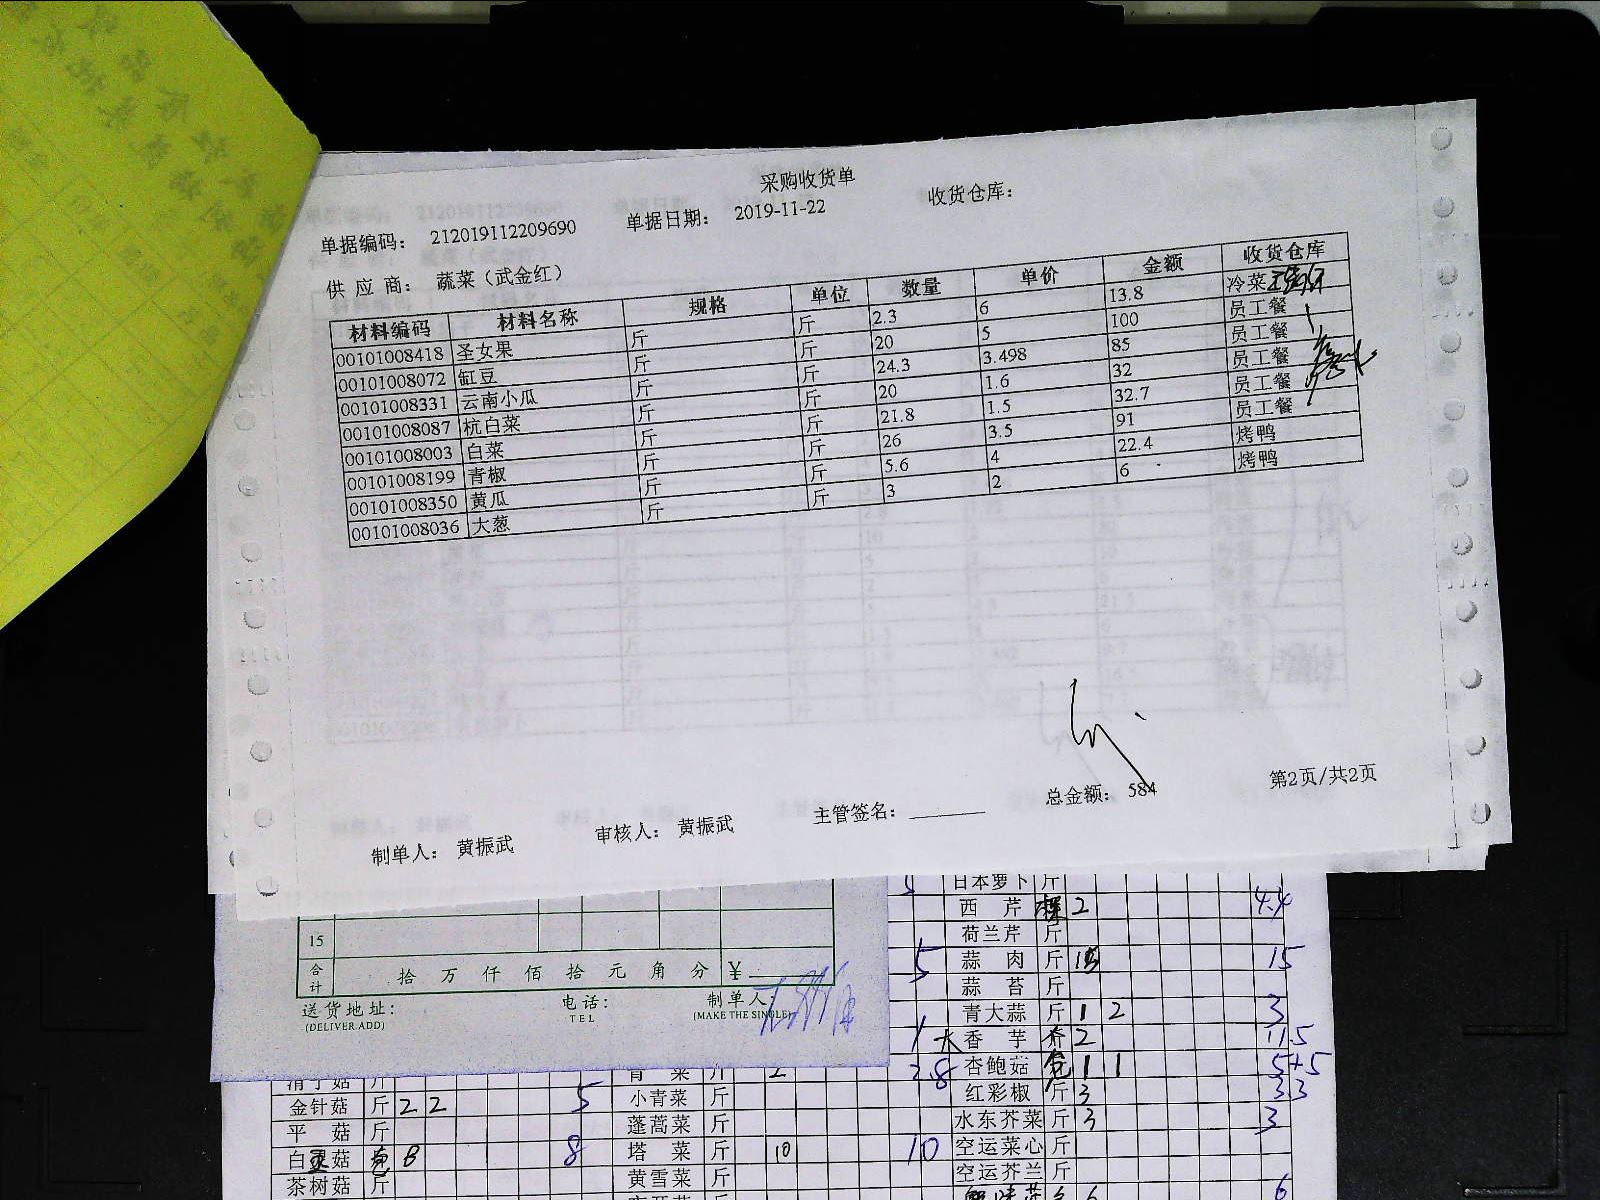 采购收货单
单据编码： 212019112209690 单据日期： 2019-11-22 收货仓库：
供 应 商： 蔬菜（武金红）
材料编码 材料名称 规格 单位 数量 单价 金额 收货仓库
00101008418 圣女果 斤 斤 2.3 6 13.8 冷菜
00101008072 缸豆 斤 斤 20 5 100 员工餐
00101008331 云南小瓜 斤 斤 24.3 3.498 85 员工餐
00101008087 杭白菜 斤 斤 20 1.6 32 员工餐
00101008003 白菜 斤 斤 21.8 1.5 32.7 员工餐
00101008199 青椒 斤 斤 26 3.5 91 员工餐
00101008350 黄瓜 斤 斤 5.6 4 22.4 烤鸭
00101008036 大葱 斤 斤 3 2 6 烤鸭
制单人： 黄振武 审核人： 黄振武 主管签名： 总金额： 584 第2页/共2页
15
合计 拾 万 仟 佰 拾 元 角 分 ¥
送货地址： 电话： 制单人
(DELIVER ADD) TEL (MAKE THE SINGLE)
日本萝卜 斤
西 芹 2 4.4
荷兰芹 斤
5 蒜 肉 斤 15
蒜 苔 斤
青大蒜 斤 1 2 3
1 大香 芋 2 11.5
青 菜 斤 2 2.8 杏鲍菇 1 1 5+5
金针菇 斤 2 2 5 小青菜 斤 红彩椒 斤 3 3.3
平 菇 斤 蓬蒿菜 斤 水东芥菜 斤 3 3
白灵菇 8 8 塔 菜 斤 10 10 空运菜心 斤
茶树菇 斤 黄雪菜 斤 空运芥兰 斤
6 6